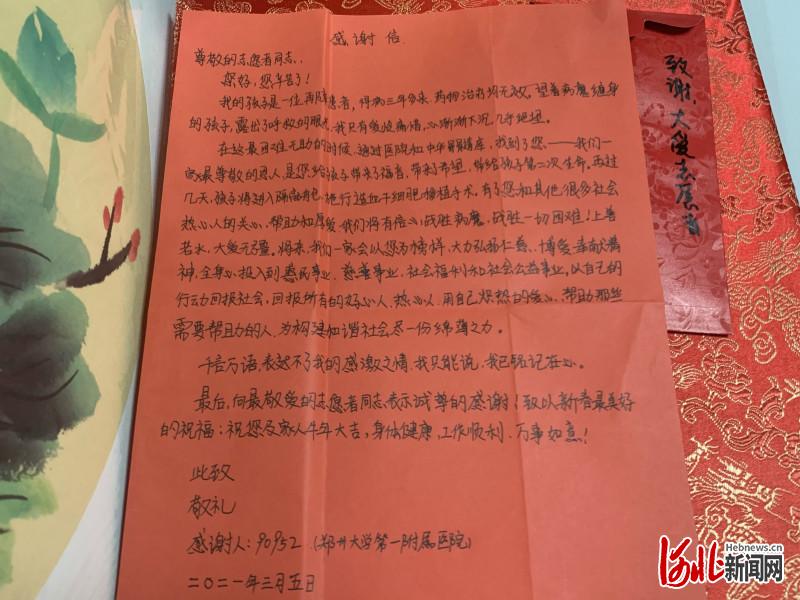 感谢信
尊敬的志愿者同志：
您好，您辛苦了！
我的孩子是一位再障患者，得病三年多来，药物治疗均无效。望着病魔缠身
的孩子，露出了呼救的眼神，我只有继续痛惜，心渐渐下沉，几乎绝望。
在这最困难无助的时候，通过医院和中华骨髓库，找到了您——我们一
家最尊敬的恩人，是您给孩子带来了福音，带来希望，带给孩子第二次生命。再过
几天，孩子将进入隔离病仓，进行造血干细胞移植手术。有了您和其他很多社会
热心人的关心，帮助和厚爱，我们将有信心战胜病魔，战胜一切困难！上善
若水，大爱无疆。将来，我们一家会以您为榜样，大力弘扬仁慈、博爱、奉献精
神，全身心投入到惠民事业、慈善事业，社会福利和社会公益事业。以自己的
行动回报社会，回报所有的好心人、热心人，用自己炽热的爱心，帮助那些
需要帮助的人，为构建和谐社会尽一份绵薄之力。
千言万语，表达不了我的感激之情，我只能说，我已铭记在心。
最后，向最敬爱的志愿者同志表示诚尊的感谢！致以新春最美好
的祝福：祝您及家人牛年大吉，身体健康，工作顺利，万事如意！
此致
敬礼
感谢人：90952（郑州大学第一附属医院）
二〇二一年三月五日
致谢：大爱志愿者
河北新闻网
Hebnews.cn